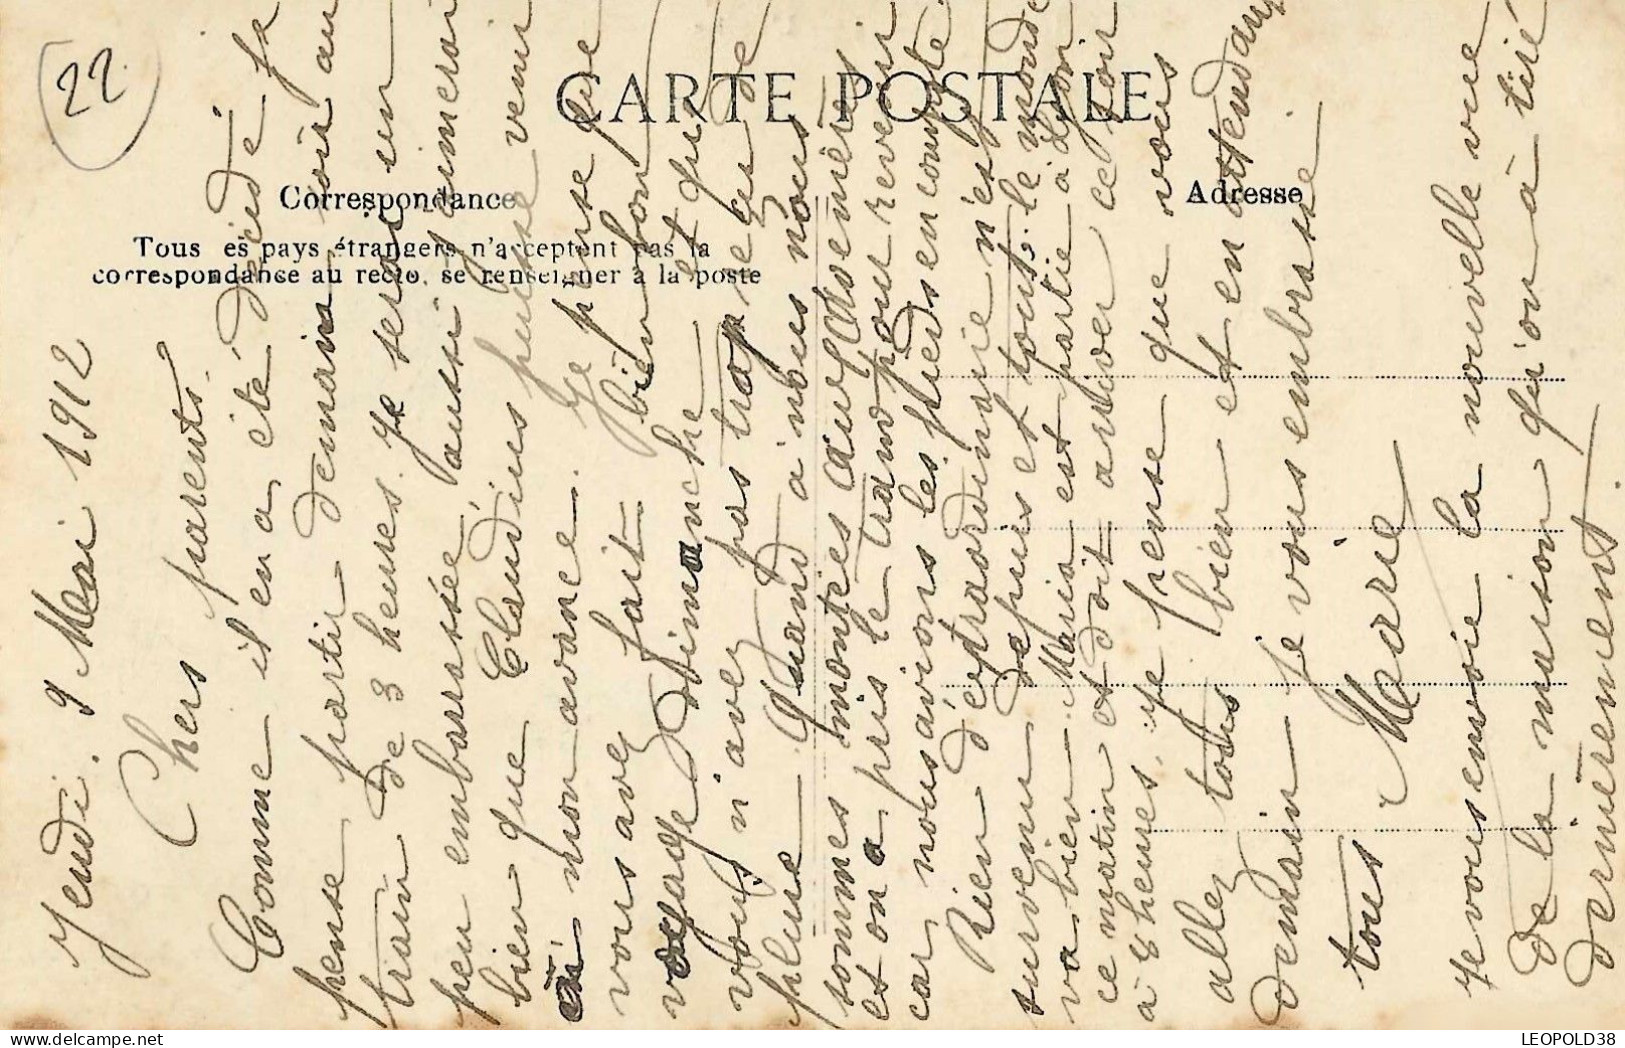 22
CARTE POSTALE
Correspondance
Adresse
Tous es pays étrangers n'acceptent pas la
correspondance au recto, se renseigner à la poste
Jeudi. 9 Mai 1912
Chers parents.
Comme il en a été décidé je
pense partir demain soir au
train de 3 heures. Je serai un
peu embarassée, aussi j'aimerai
bien que Claudius puisse venir
à mon avance. Je pense que
vous avez fait bien bon
voyage Dimanche et que
vous n'avez pas trop reçu de
pluie. Quand à nous nous
sommes montées aux dernières
et on a pris le tram pour revenir
car nous avions les pieds en compote.
Rien d'extraordinaire n'est
survenu depuis et tout le monde
va bien. Maria est partie à Lyon
ce matin et doit arriver ce soir
à 8 heures. Je pense que vous
allez tous bien et en attendant
demain je vous embrasse
tous Marie
Je vous envoie la nouvelle vue
de la maison qu'on a tiré
dernièrement.
LEOPOLD38